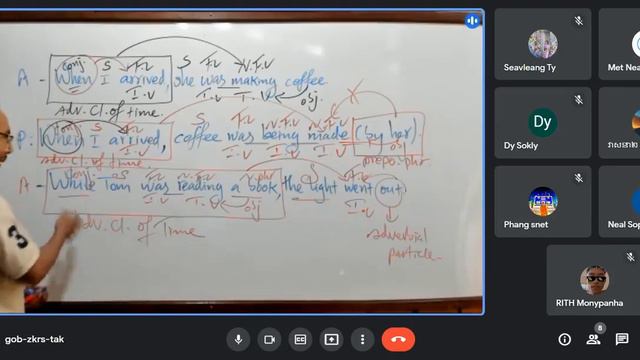 conj. S F.V S F.V N.F.V
A - When I arrived, she was making coffee
I.V T.V obj.
Adv. Cl. of time.
conj. S F.V S F.V N.F.V
P: When I arrived, coffee was being made (by her).
I.V T.V
Adv. Cl. of time. prepo. phr
conj. S F.V N.F.V S F.V
A - While Tom was reading a book, the light went out
T.V obj I.V
Adv. Cl. of Time
adverbial
particle
3
Seavleang Ty
Met Nea
Dy
Dy Sokly
Phang snet
Neal Sop
RITH Monypanha
8
gob-zkrs-tak